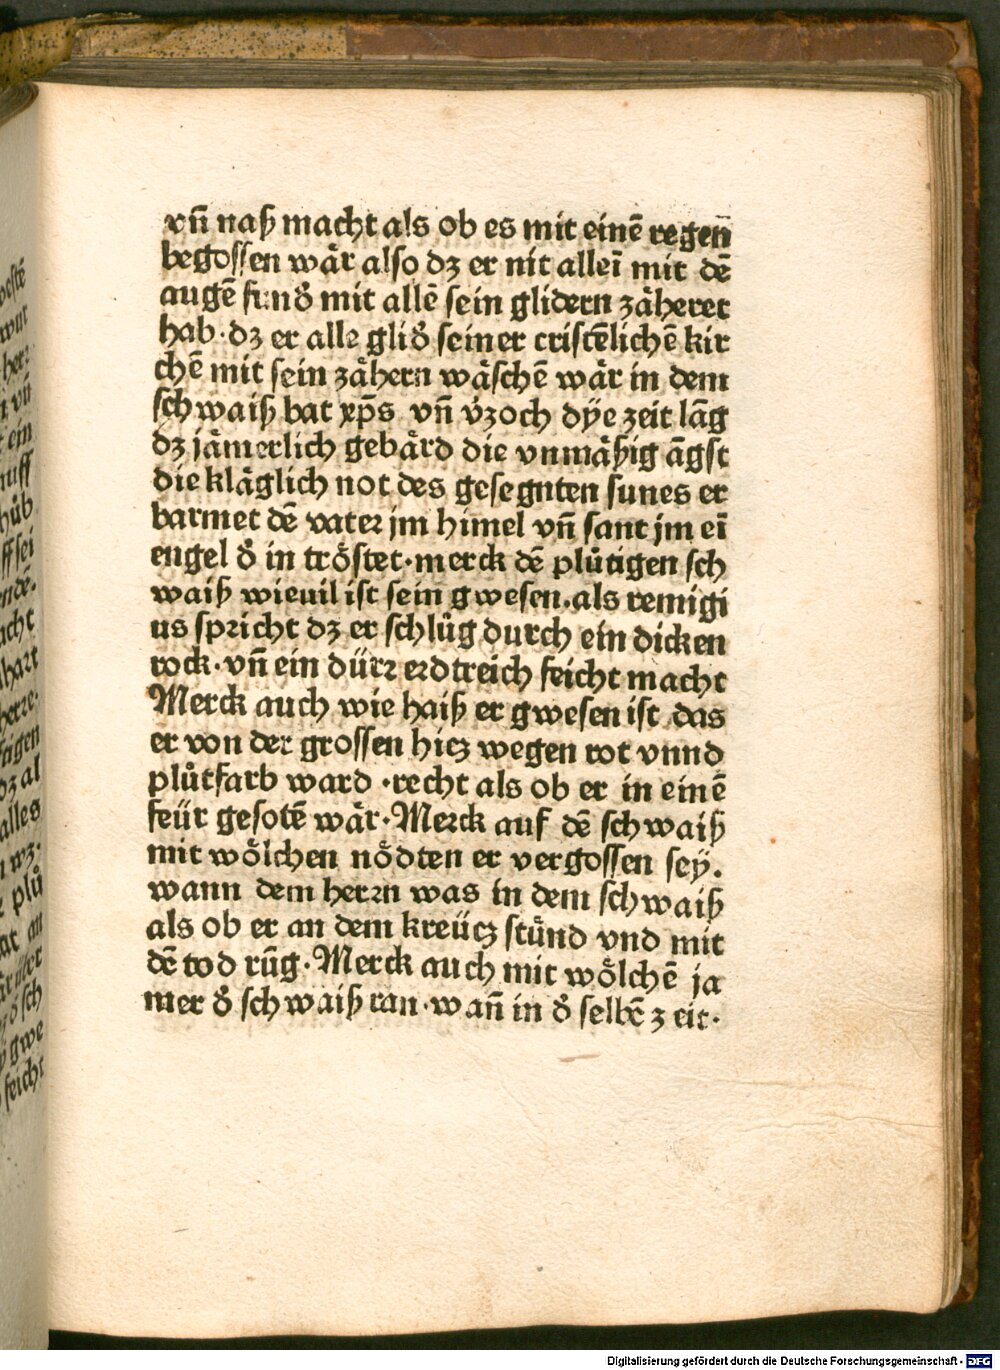 vn̄ naß macht als ob es mit einē regen̄
begossen wår also dʒ er nit alleī mit dē
augē sund̾ mit allē sein glidern zåheret
hab· dʒ er alle glid̾ seiner cristēlichē kir
chē mit sein zåhern wåschē wår in dem
schwaiß bat xp̄s vn̄ v̾zoch dÿe zeit lāg
dʒ jåmerlich gebård die vnmåßig āgst
die klåglich not des gesegnten sunes er
barmet dē vater jm him̄el vn̄ sant jm eī
engel d̾ in tröstet· merck dē plůtigen sch
waiß wieuil ist sein gwesen. als remigi
us spricht dʒ er schlůg durch ein dicken
rock· vn̄ ein dürr erdtreich feicht macht
Merck auch wie haiß er gwesen ist das
er von der grossen hicʒ wegen rot vnnd
plůtfarb ward · recht als ob er in einē
feür gesotē wår· Merck auf dē schwaiß
mit wölchen nödten er vergossen seÿ.
wann dem herrn was in dem schwaiß
als ob er an dem kreücʒ stůnd vnd mit
dē tod rūg· Merck auch mit wölchē ja
mer d̾ schwaiß ran· wan̄ in d̾ selbē zeit·
pestē
wur
her:
vn̄
ein
ruff
hůb
ff sei
ndē·
acht
hart
herre·
sagen
dʒ al
alles
wʒ·
plů
an
sch
gwe
feicht
Digitalisierung gefördert durch die Deutsche Forschungsgemeinschaft - DFG